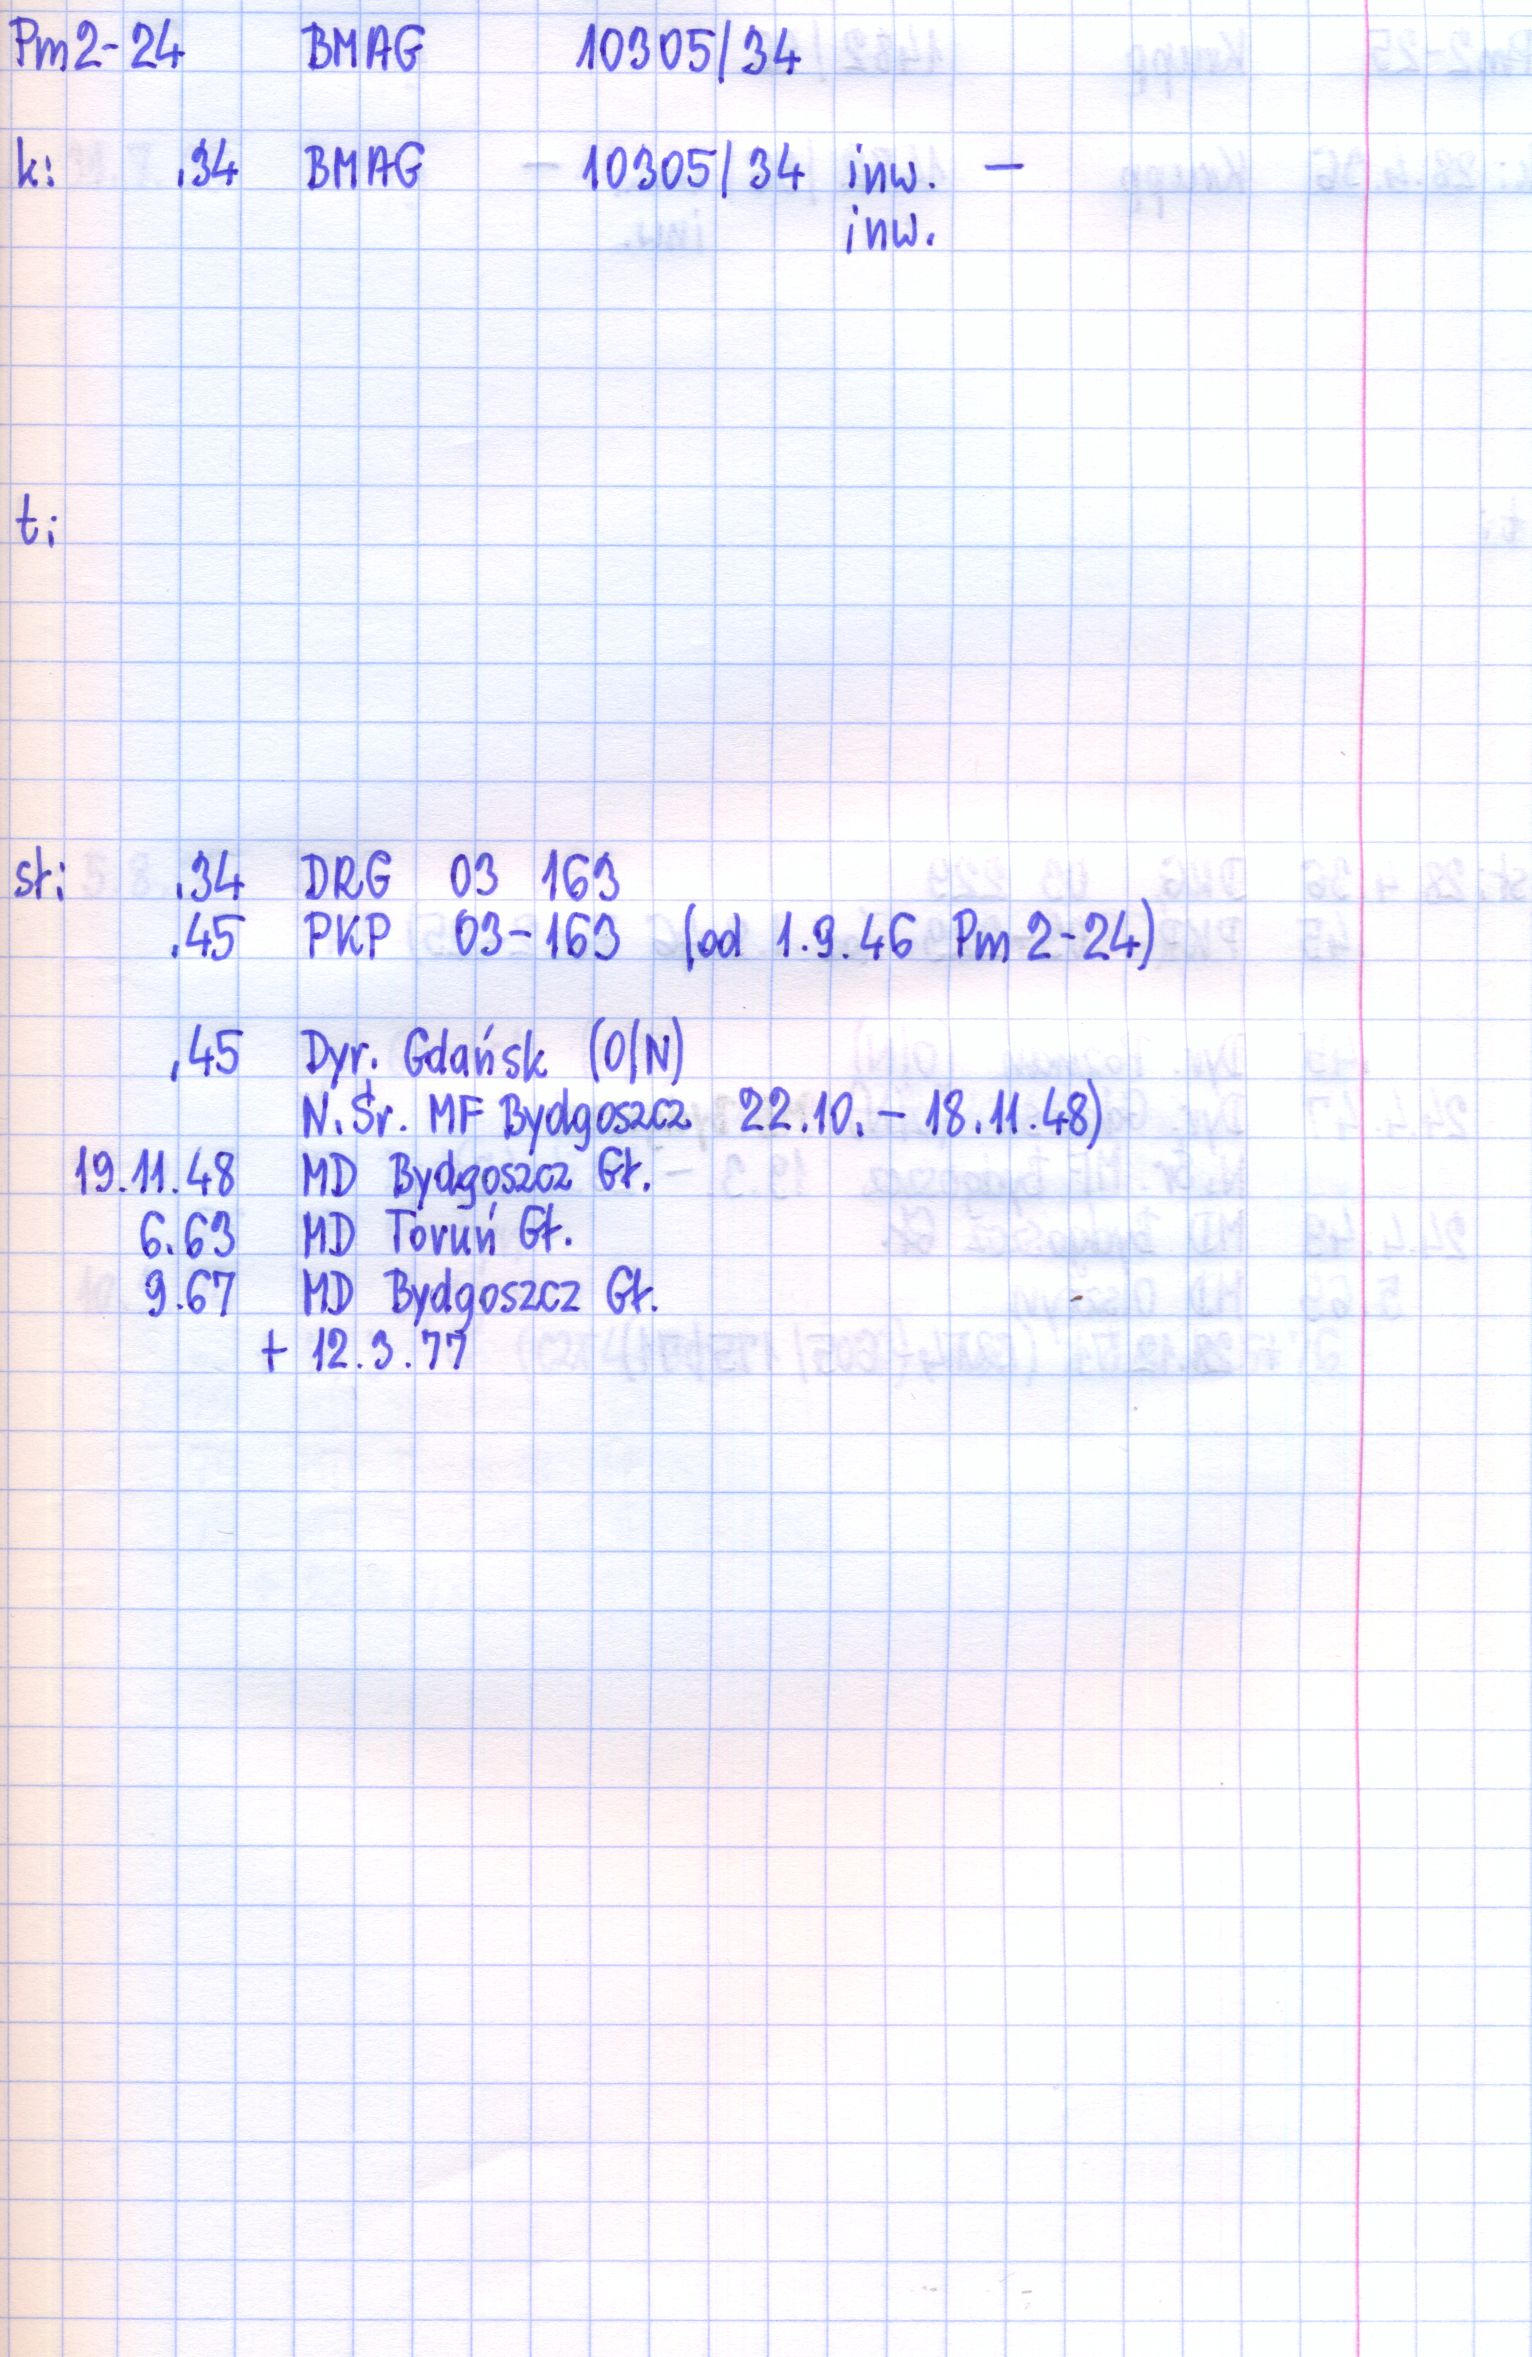 Pm2-24 BMAG 10305/34
k: .34 BMAG - 10305/34 inw. -
inw.
t:
st: .34 DRG 03 163
.45 PKP 03-163 (od 1.9.46 Pm2-24)
.45 Dyr. Gdańsk (O/N)
N.Śr. MF Bydgoszcz 22.10. - 18.11.48)
19.11.48 MD Bydgoszcz Gł.
6.63 MD Toruń Gł.
9.67 MD Bydgoszcz Gł.
+ 12.3.77